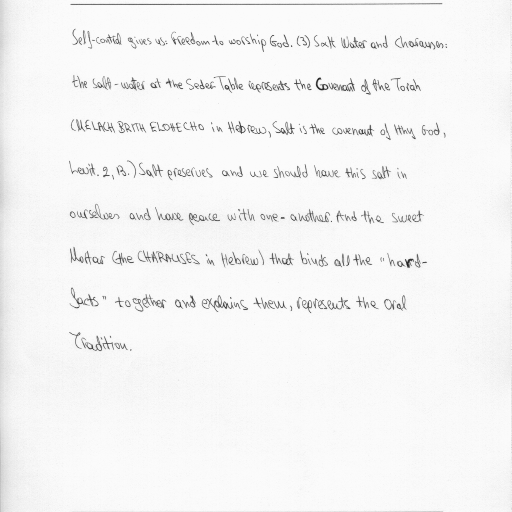 Self-control gives us: Freedom to worship God. (3) Salt Water and Charausen:
the salt-water at the Seder-Table represents the Covenant of the Torah
(MELACH BRITH ELOHECHO in Hebrew, Salt is the covenant of thy God,
Levit. 2, 13.) Salt preserves and we should have this salt in
ourselves and have peace with one-another. And the sweet
Mortar (the CHARAUSES in Hebrew) that binds all the "hard-
facts" together and explains them, represents the Oral
Tradition.